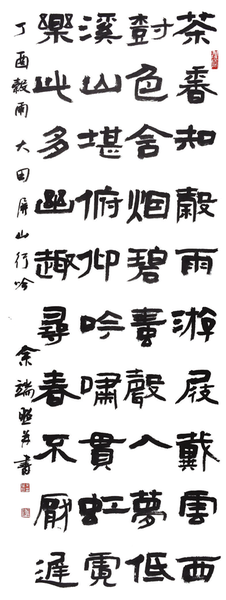 茶香知穀雨游屐戴雲西
尌色含烟碧蛙聲入夢低
溪山堪俯仰吟嘯貫虹霓
樂此多幽趣尋春不厭遲
丁酉穀雨大田屏山行吟余端照并書